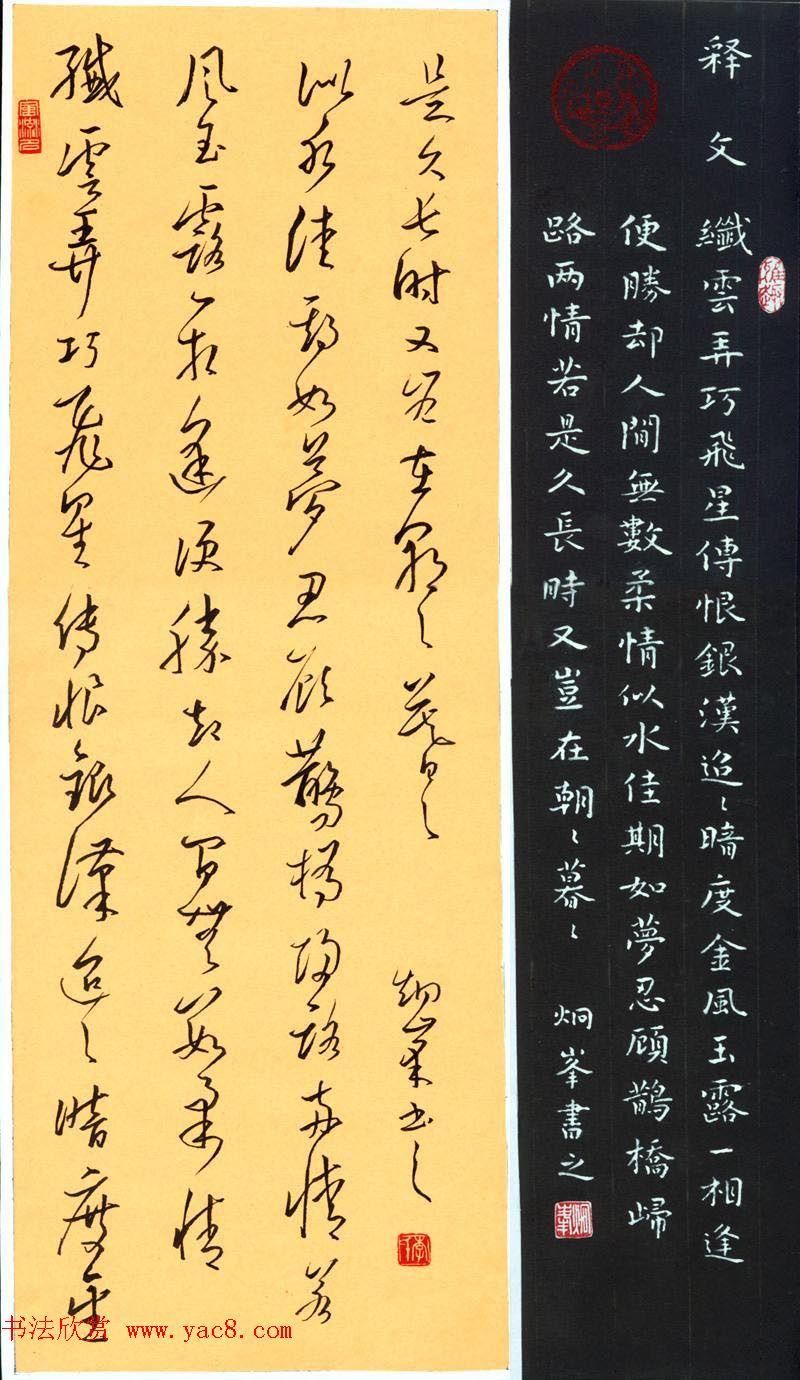 纖雲弄巧飛星傳恨銀漢迢〻暗度金
風玉露一相逢便勝却人間無數柔情
似水佳期如夢忍顧鵲橋歸路两情若
是久长时又豈在朝〻暮〻 炯峯书之
释文 纖雲弄巧飛星傳恨銀漢迢〻暗度金風玉露一相逢
便勝却人間無數柔情似水佳期如夢忍顧鵲橋歸
路两情若是久長時又豈在朝〻暮〻 炯峯書之
书法欣赏 www.yac8.com